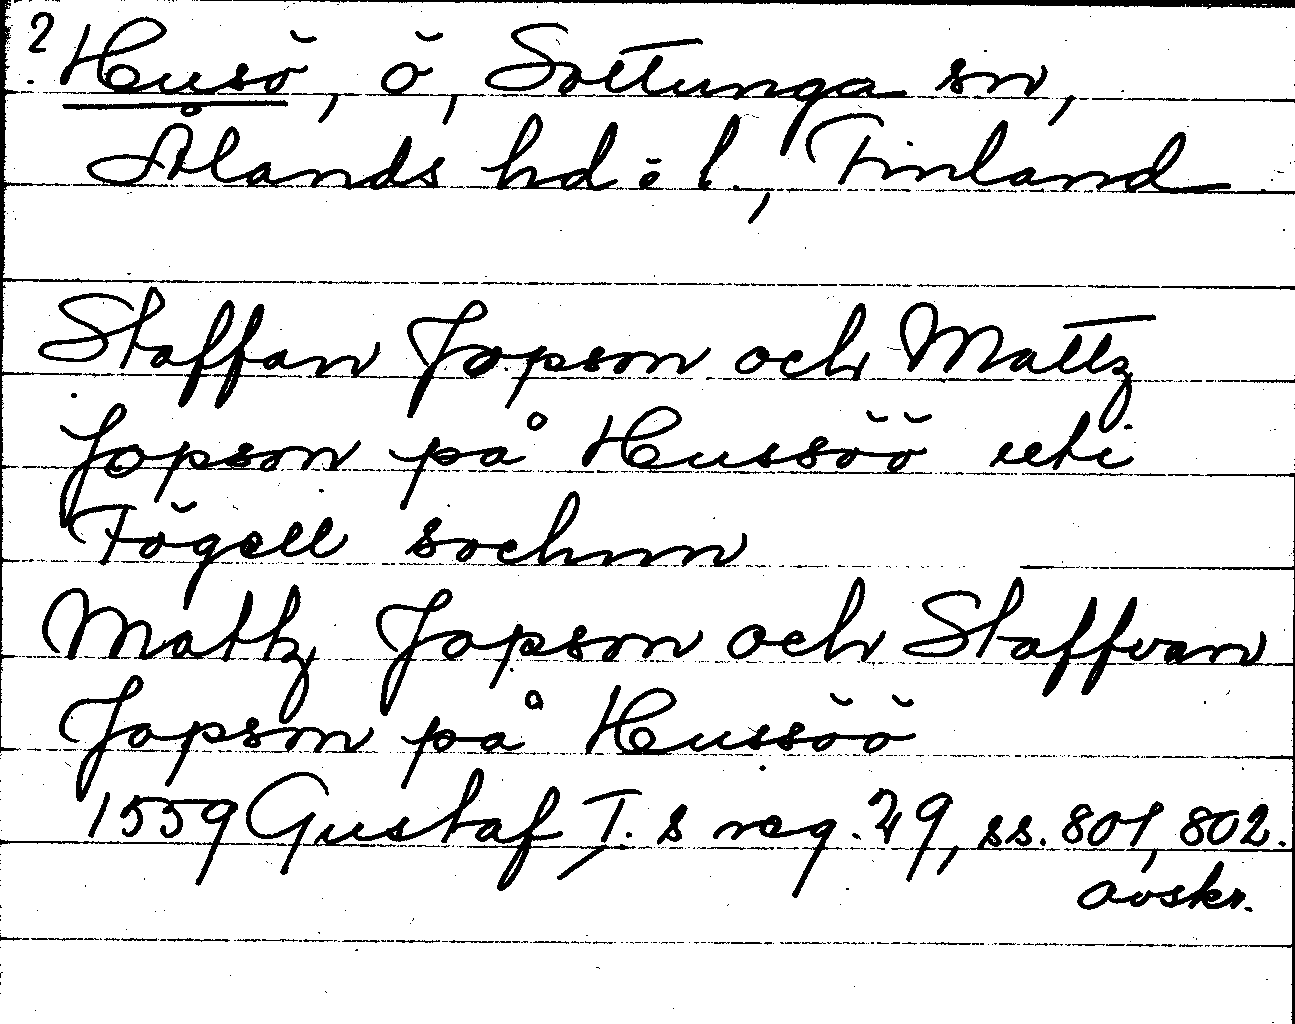 ? Husö, ö, Sottunga sn,
Ålands hd o l., Finland
Staffan Jopson och Mattz
Jopson på Hussöö uti
Fögell sochnn
Matz Jopson och Staffvan
Jopson på Hussöö
1559 Gustaf I:s reg. 29, ss. 801, 802.
avskr.